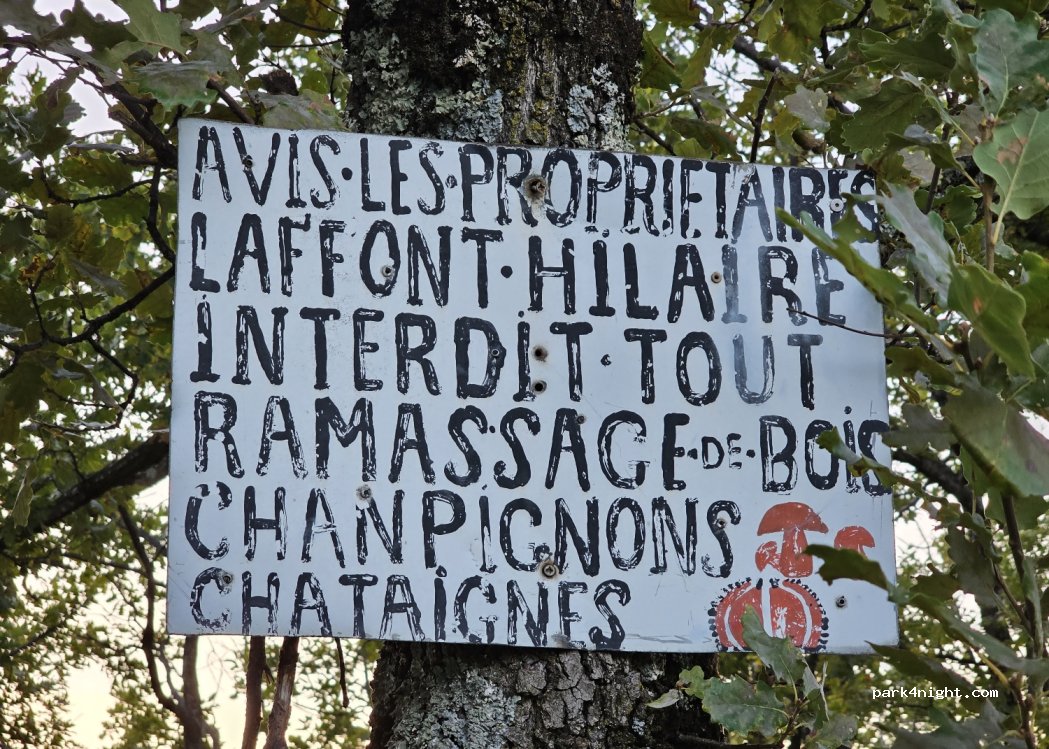 AVIS·LES·PROPRIETAIRES
LAFFONT·HILAIRE
INTERDIT·TOUT
RAMASSAGE·DE·BOIS
CHANPIGNONS
CHATAIGNES
park4night.com